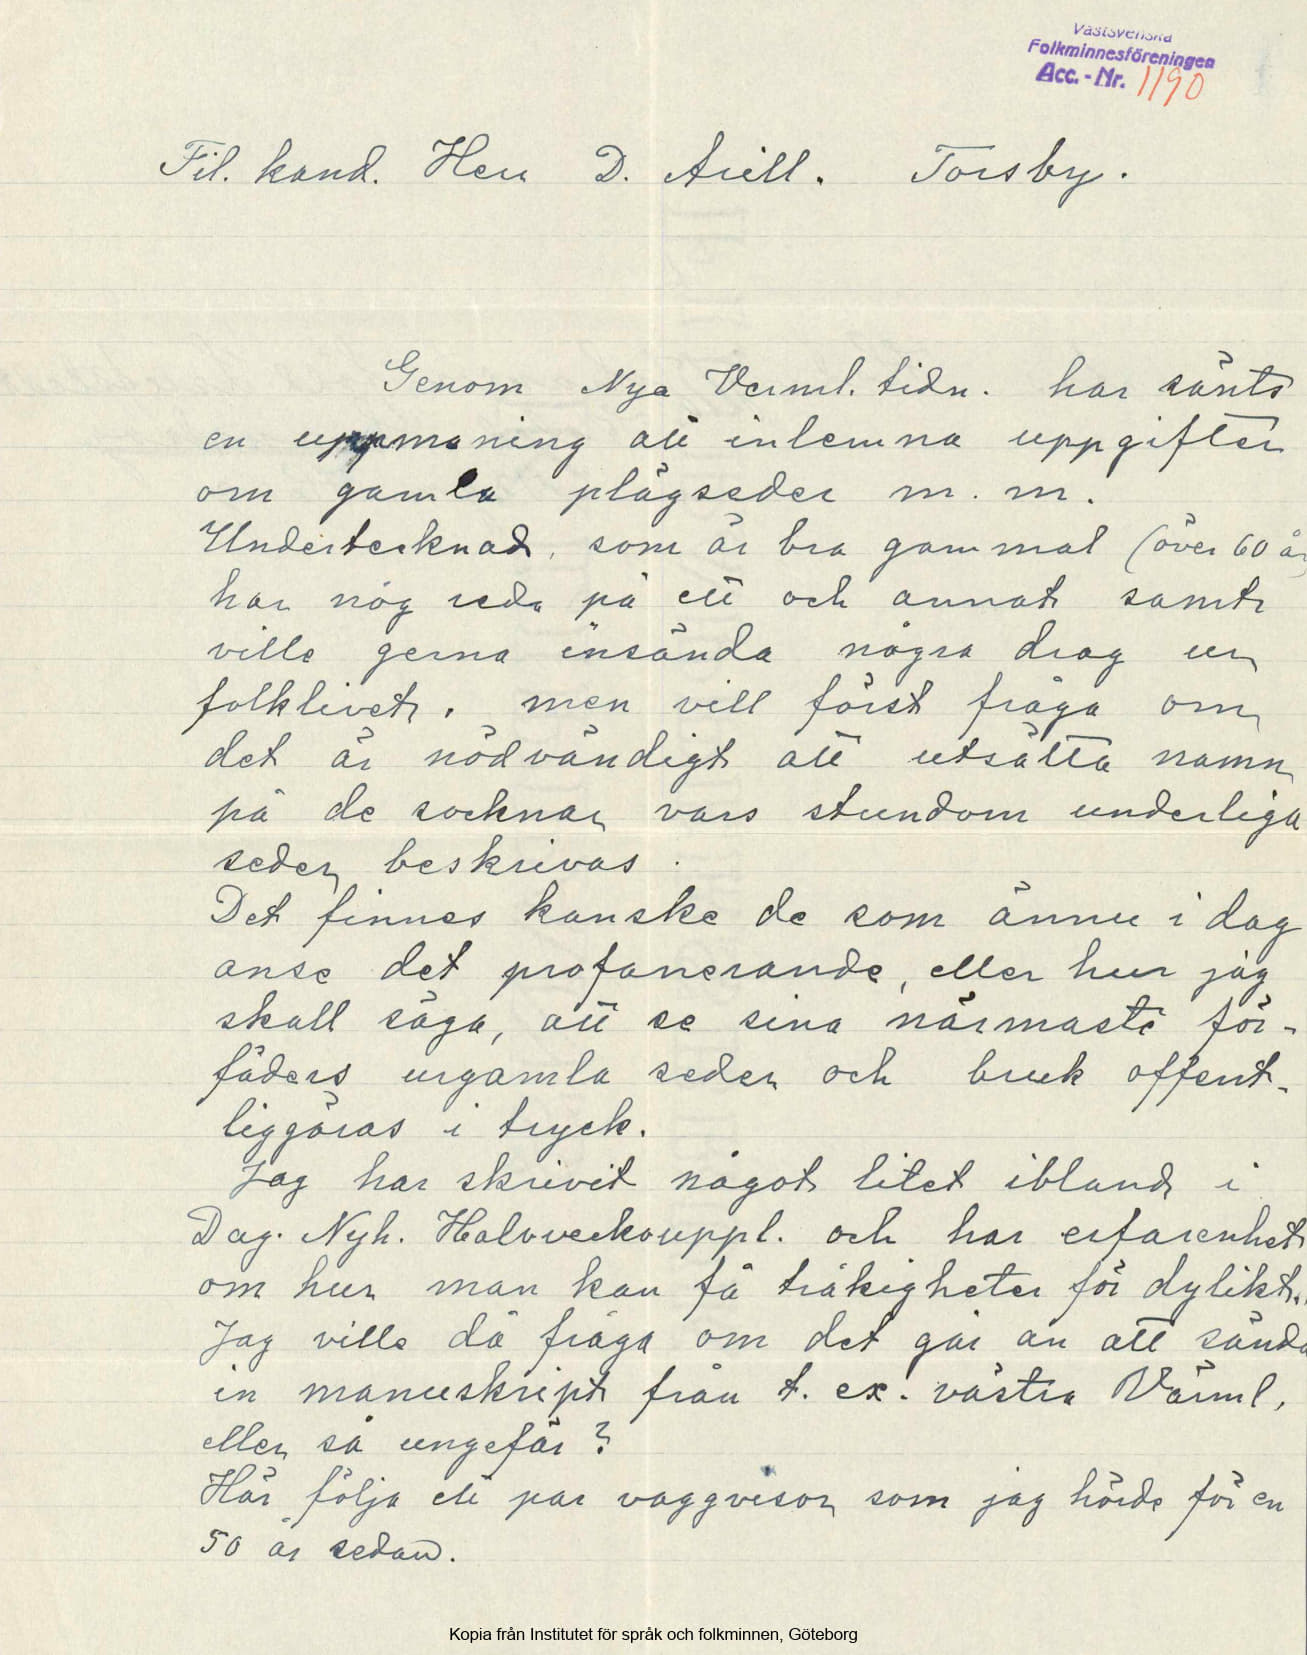 Västsvenska
Folkminnesföreningen
Acc.-Nr. 1190
Fil. kand. Herr D. Arill. Torsby.
Genom Nya Verml. tidn. har sänts
en uppmaning att inlemna uppgifter
om gamla plägseder m. m.
Undertecknad, som är bra gammal (över 60 år)
har nog reda på ett och annat samt
ville gerna insända några drag ur
folklivet, men vill först fråga om
det är nödvändigt att utsätta namn
på de socknar vars stundom underliga
seder beskrivas.
Det finnes kanske de som ännu i dag
anse det profanerande, eller hur jag
skall säga, att se sina närmaste för-
fäders urgamla seder och bruk offent-
liggöras i tryck.
Jag har skrivit något litet ibland i
Dag. Nyh. Halvveckouppl. och har erfarenhet
om hur man kan få tråkigheter för dylikt.
Jag ville då fråga om det går an att sända
in manuskript från t. ex. västra Värml,
eller så ungefär?
Här följa ett par vaggvisor som jag hörde för en
50 år sedan.
Kopia från Institutet för språk och folkminnen, Göteborg